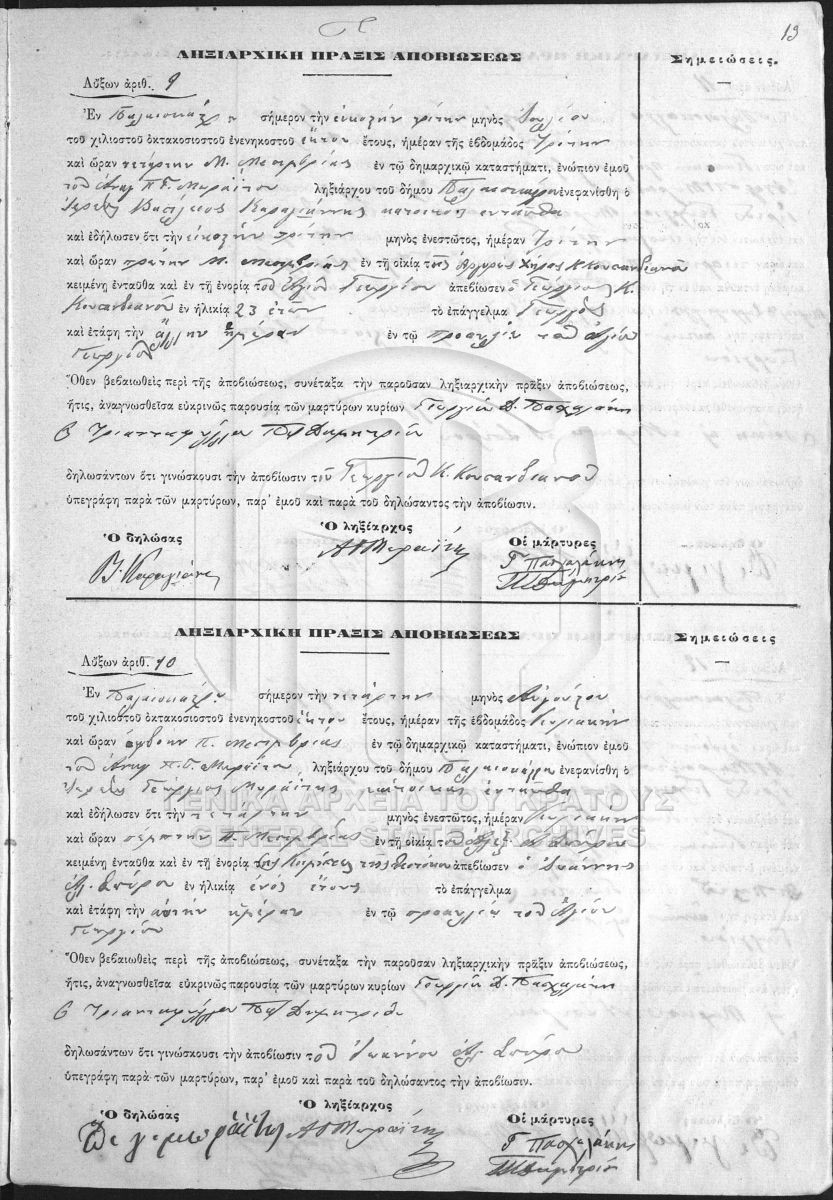 13
ΛΗΞΙΑΡΧΙΚΗ ΠΡΑΞΙΣ ΑΠΟΒΙΩΣΕΩΣ
Σημειώσεις.
Αὔξων ἀριθ. 9
Ἐν σήμερον τὴν εἰκοστὴν τρίτην μηνὸς Ἰουλίου
τοῦ χιλιοστοῦ ὀκτακοσιοστοῦ ἐνενηκοστοῦ ἕκτου ἔτους, ἡμέραν τῆς ἑβδομάδος Τρίτην
καὶ ὥραν τετάρτην Μ. Μεσημβρίας ἐν τῷ δημαρχικῷ καταστήματι, ἐνώπιον ἐμοῦ
τοῦ Π. Γ. Μωραΐτου ληξιάρχου τοῦ δήμου ἐνεφανίσθη ὁ
Ἱερεὺς Βασίλειος Καραγιάννης κάτοικος ἐνταῦθα
καὶ ἐδήλωσεν ὅτι τὴν εἰκοστὴν τρίτην μηνὸς ἐνεστῶτος, ἡμέραν Τρίτην
καὶ ὥραν πρώτην Μ. Μεσημβρίας ἐν τῇ οἰκίᾳ τῆς χήρας Κ.
κειμένῃ ἐνταῦθα καὶ ἐν τῇ ἐνορίᾳ τοῦ Ἁγίου Γεωργίου ἀπεβίωσεν ὁ Γεώργιος Κ.
ἐν ἡλικίᾳ 23 ἐτῶν τὸ ἐπάγγελμα Γεωργὸς
καὶ ἐτάφη τὴν ἄλλην ἡμέραν ἐν τῷ προαυλίῳ τοῦ Ἁγίου
Γεωργίου
Ὅθεν βεβαιωθεὶς περὶ τῆς ἀποβιώσεως, συνέταξα τὴν παροῦσαν ληξιαρχικὴν πρᾶξιν ἀποβιώσεως,
ἥτις, ἀναγνωσθεῖσα εὐκρινῶς παρουσίᾳ τῶν μαρτύρων κυρίων Γεωργίου Δ. Πασχαλάκη
Τριανταφύλλου Παπ Δημητρίου
δηλωσάντων ὅτι γινώσκουσι τὴν ἀποβίωσιν τοῦ Γεωργίου Κ.
ὑπεγράφη παρὰ τῶν μαρτύρων, παρ' ἐμοῦ καὶ παρὰ τοῦ δηλώσαντος τὴν ἀποβίωσιν.
Ὁ δηλώσας
Ὁ ληξίαρχος
Οἱ μάρτυρες
Β. Καραγιάννης
Γ. Πασχαλάκης
ΛΗΞΙΑΡΧΙΚΗ ΠΡΑΞΙΣ ΑΠΟΒΙΩΣΕΩΣ
Σημειώσεις
Αὔξων ἀριθ. 10
Ἐν σήμερον τὴν τετάρτην μηνὸς Αὐγούστου
τοῦ χιλιοστοῦ ὀκτακοσιοστοῦ ἐνενηκοστοῦ ἕκτου ἔτους, ἡμέραν τῆς ἑβδομάδος Κυριακὴν
καὶ ὥραν ὀγδόην Π. Μεσημβρίας ἐν τῷ δημαρχικῷ καταστήματι, ἐνώπιον ἐμοῦ
τοῦ Π. Γ. Μωραΐτου, ληξιάρχου τοῦ δήμου ἐνεφανίσθη ὁ
Ἱερεὺς Γεώργιος Μωραΐτης κάτοικος ἐνταῦθα
ΓΕΝΙΚΑ ΑΡΧΕΙΑ ΤΟΥ ΚΡΑΤΟΥΣ
καὶ ἐδήλωσεν ὅτι τὴν τετάρτην μηνὸς ἐνεστῶτος, ἡμέραν Κυριακὴν
GENERAL STATE ARCHIVES
καὶ ὥραν πέμπτην Π. Μεσημβρίας ἐν τῇ οἰκίᾳ τοῦ Σπύρου
κειμένῃ ἐνταῦθα καὶ ἐν τῇ ἐνορίᾳ τῆς Κοιμήσεως τῆς Θεοτόκου ἀπεβίωσεν ὁ Ἰωάννης
Σπύρου ἐν ἡλικίᾳ ἑνὸς ἔτους τὸ ἐπάγγελμα
καὶ ἐτάφη τὴν αὐτὴν ἡμέραν ἐν τῷ προαυλίῳ τοῦ Ἁγίου
Γεωργίου
Ὅθεν βεβαιωθεὶς περὶ τῆς ἀποβιώσεως, συνέταξα τὴν παροῦσαν ληξιαρχικὴν πρᾶξιν ἀποβιώσεως,
ἥτις, ἀναγνωσθεῖσα εὐκρινῶς παρουσίᾳ τῶν μαρτύρων κυρίων Γεωργίου Δ. Πασχαλάκη
Τριανταφύλλου Παπ Δημητρίου
δηλωσάντων ὅτι γινώσκουσι τὴν ἀποβίωσιν τοῦ Ἰωάννου Σπύρου
ὑπεγράφη παρὰ τῶν μαρτύρων, παρ' ἐμοῦ καὶ παρὰ τοῦ δηλώσαντος τὴν ἀποβίωσιν.
Ὁ δηλώσας
Ὁ ληξίαρχος
Οἱ μάρτυρες
Γ. Πασχαλάκης